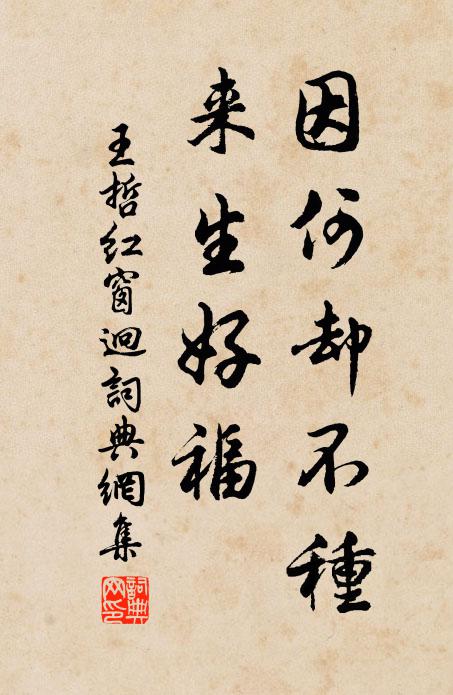 因何却不種
来生好福
王哲红窗迥詞典網集
詞典網印